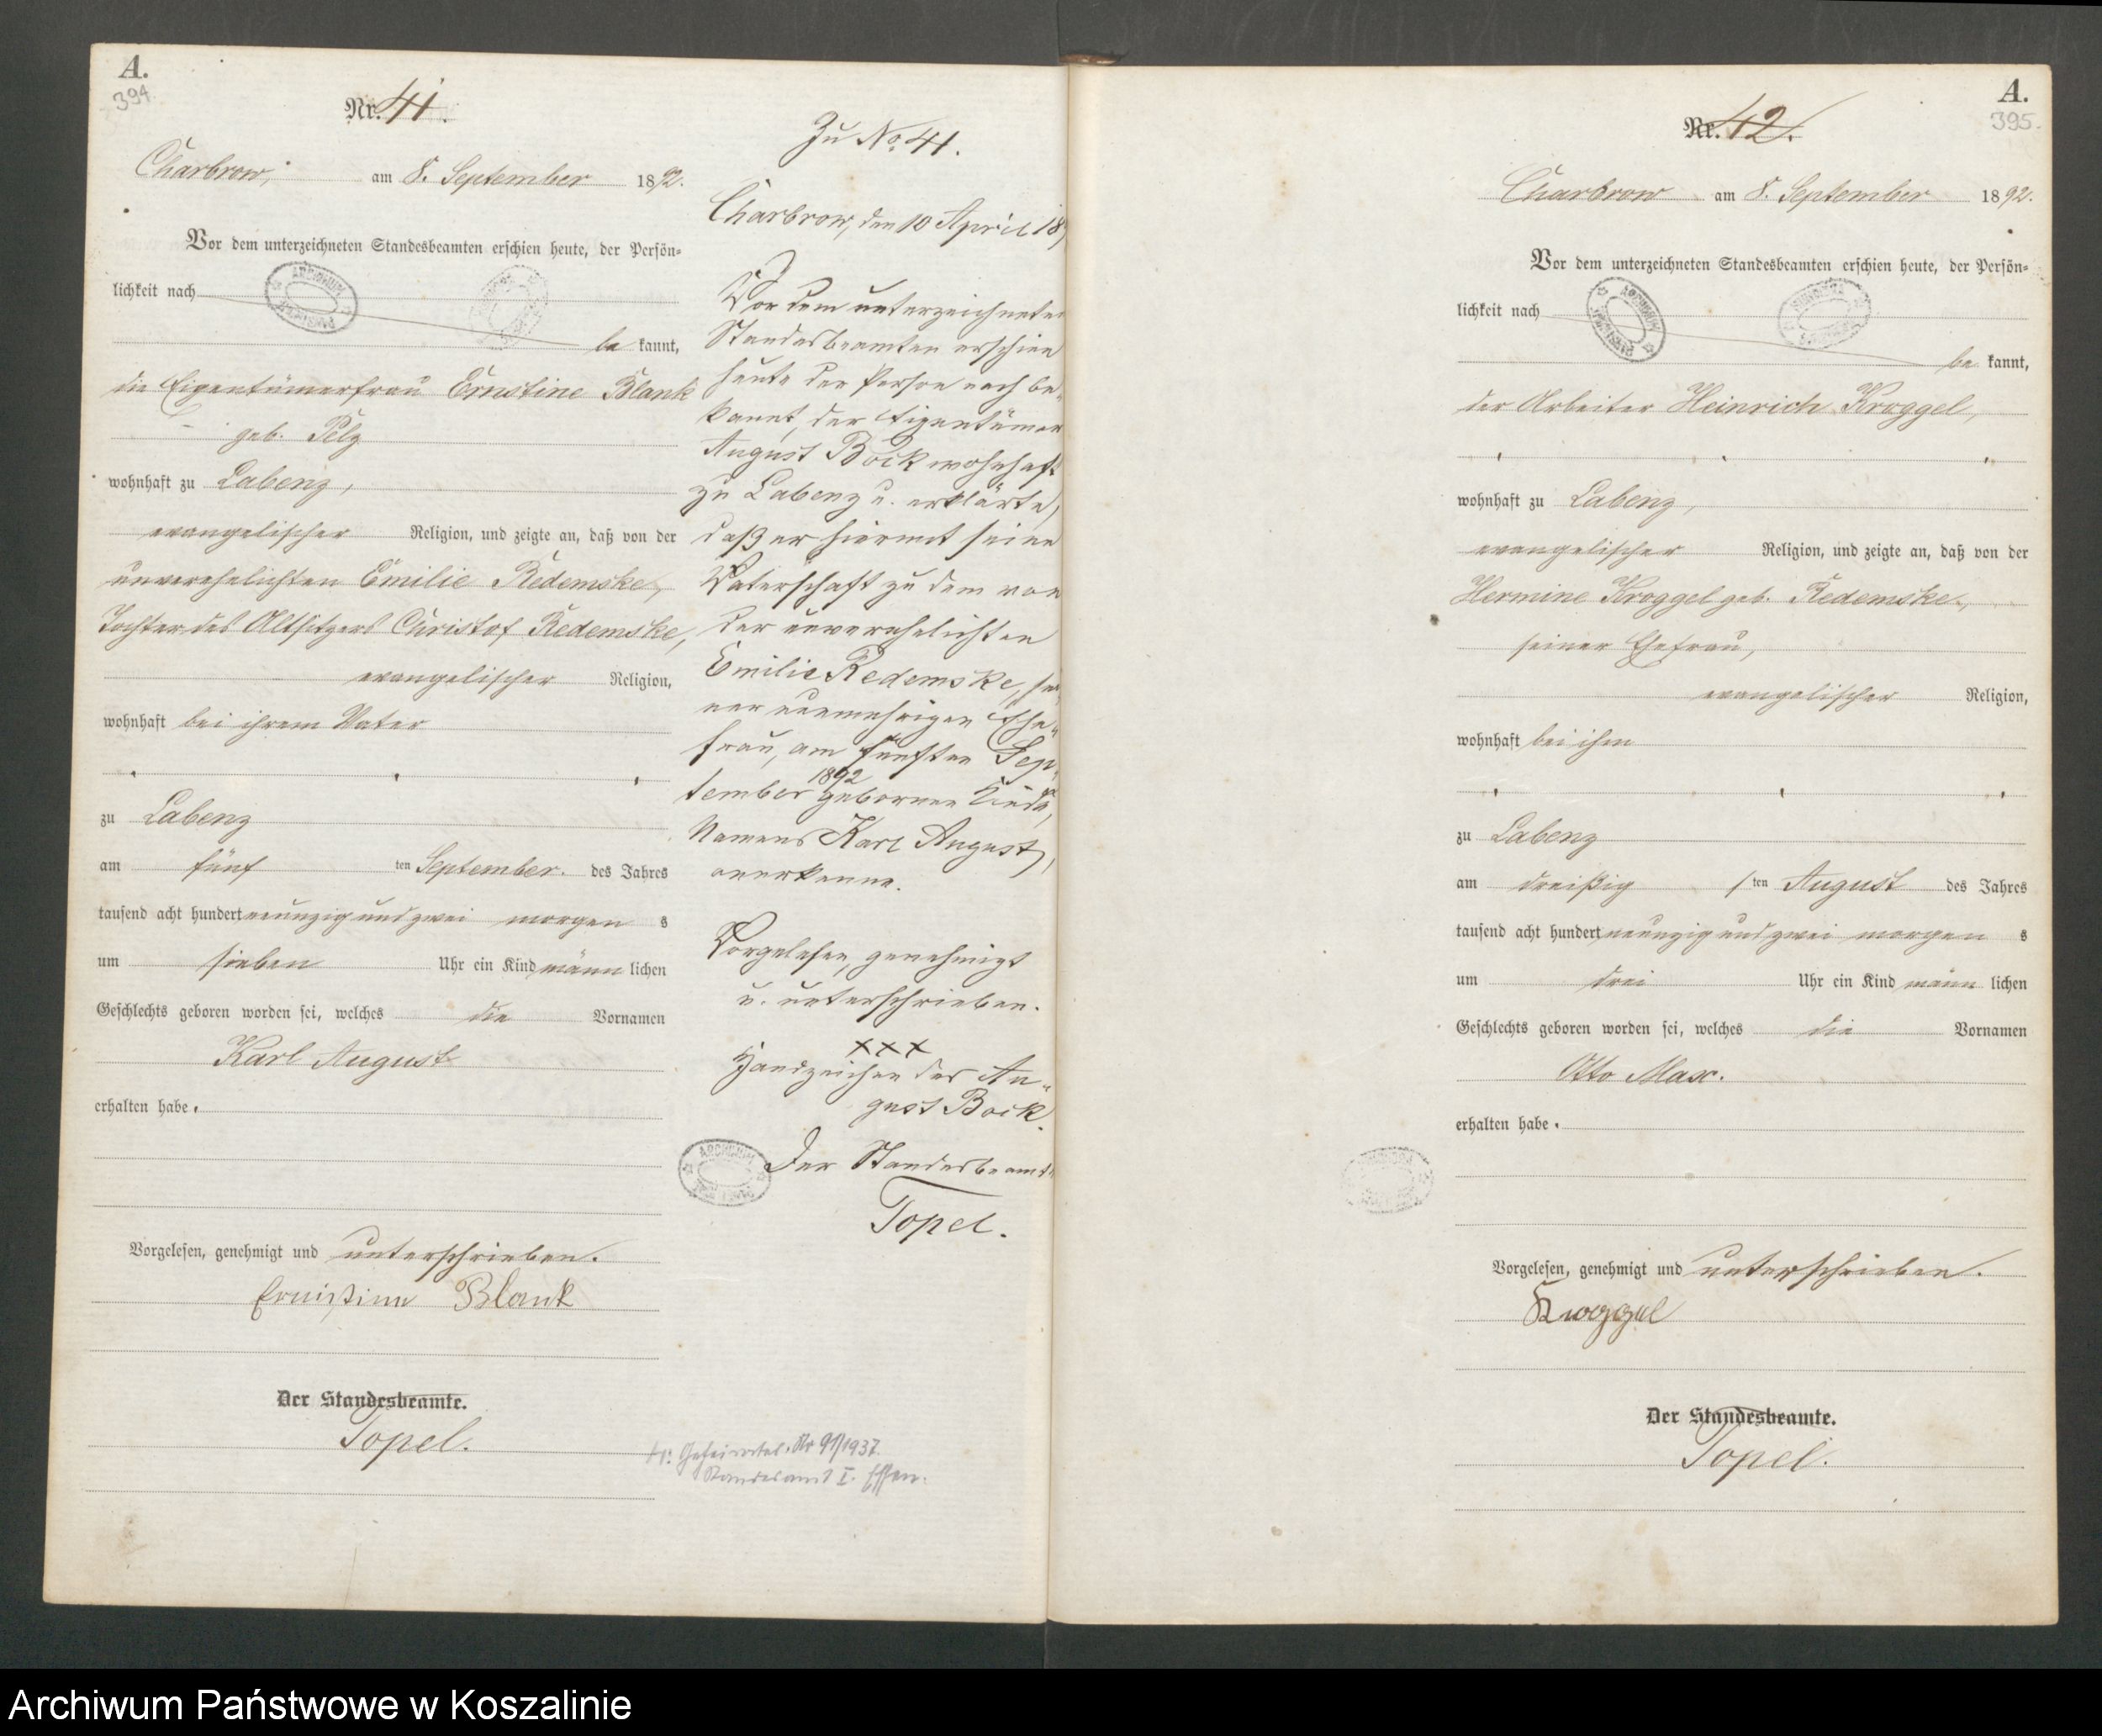 A.
394.
Nr. 41.
Charbrow, am 8. September 1892.
Vor dem unterzeichneten Standesbeamten erschien heute, der Persön-
lichkeit nach
be kannt,
die Eigentümerfrau Ernstine Blank
geb. Pelz
wohnhaft zu Labenz,
evangelischer Religion, und zeigte an, daß von der
unverehelichten Emilie Redemske,
Tochter des Altsitzers Christof Redemske,
evangelischer Religion,
wohnhaft bei ihrem Vater
zu Labenz
am fünf ten September des Jahres
tausend acht hundert neunzig und zwei morgen s
um sieben Uhr ein Kind männ lichen
Geschlechts geboren worden sei, welches die Vornamen
Karl August
erhalten habe.
Vorgelesen, genehmigt und unterschrieben.
Ernistine Blank
Der Standesbeamte.
Topel.
Zu No. 41.
Charbrow, den 10 April 18
Vor dem unterzeichneten
Standesbeamten erschien
heute der Person nach be-
kannt, der Eigentümer
August Bock wohnhaft
zu Labenz u. erklärte,
daß er hiermit seine
Vaterschaft zu dem von
der unverehelichten
Emilie Redemske, sei-
ner nunmehrigen Ehe-
frau, am fünften Sep-
tember 1892 gebornen Kinde,
Namens Karl August,
anerkenne.
Vorgelesen, genehmigt
u. unterschrieben.
XXX
Handzeichen des Au-
gust Bock.
Der Standesbeamte
Topel.
H: Nr 91/1937.
Standesamt I. Essen.
A.
395.
Nr. 42.
Charbrow am 8. September 1892.
Vor dem unterzeichneten Standesbeamten erschien heute, der Persön-
lichkeit nach
be kannt,
der Arbeiter Heinrich Kroggel,
wohnhaft zu Labenz,
evangelischer Religion, und zeigte an, daß von der
Hermine Kroggel geb. Redemske,
seiner Ehefrau,
evangelischer Religion,
wohnhaft bei ihm
zu Labenz
am dreißig ten August des Jahres
tausend acht hundert neunzig und zwei morgen s
um drei Uhr ein Kind männ lichen
Geschlechts geboren worden sei, welches die Vornamen
Otto Max.
erhalten habe.
Vorgelesen, genehmigt und unterschrieben.
Kroggel
Der Standesbeamte.
Topel.
Archiwum Państwowe w Koszalinie